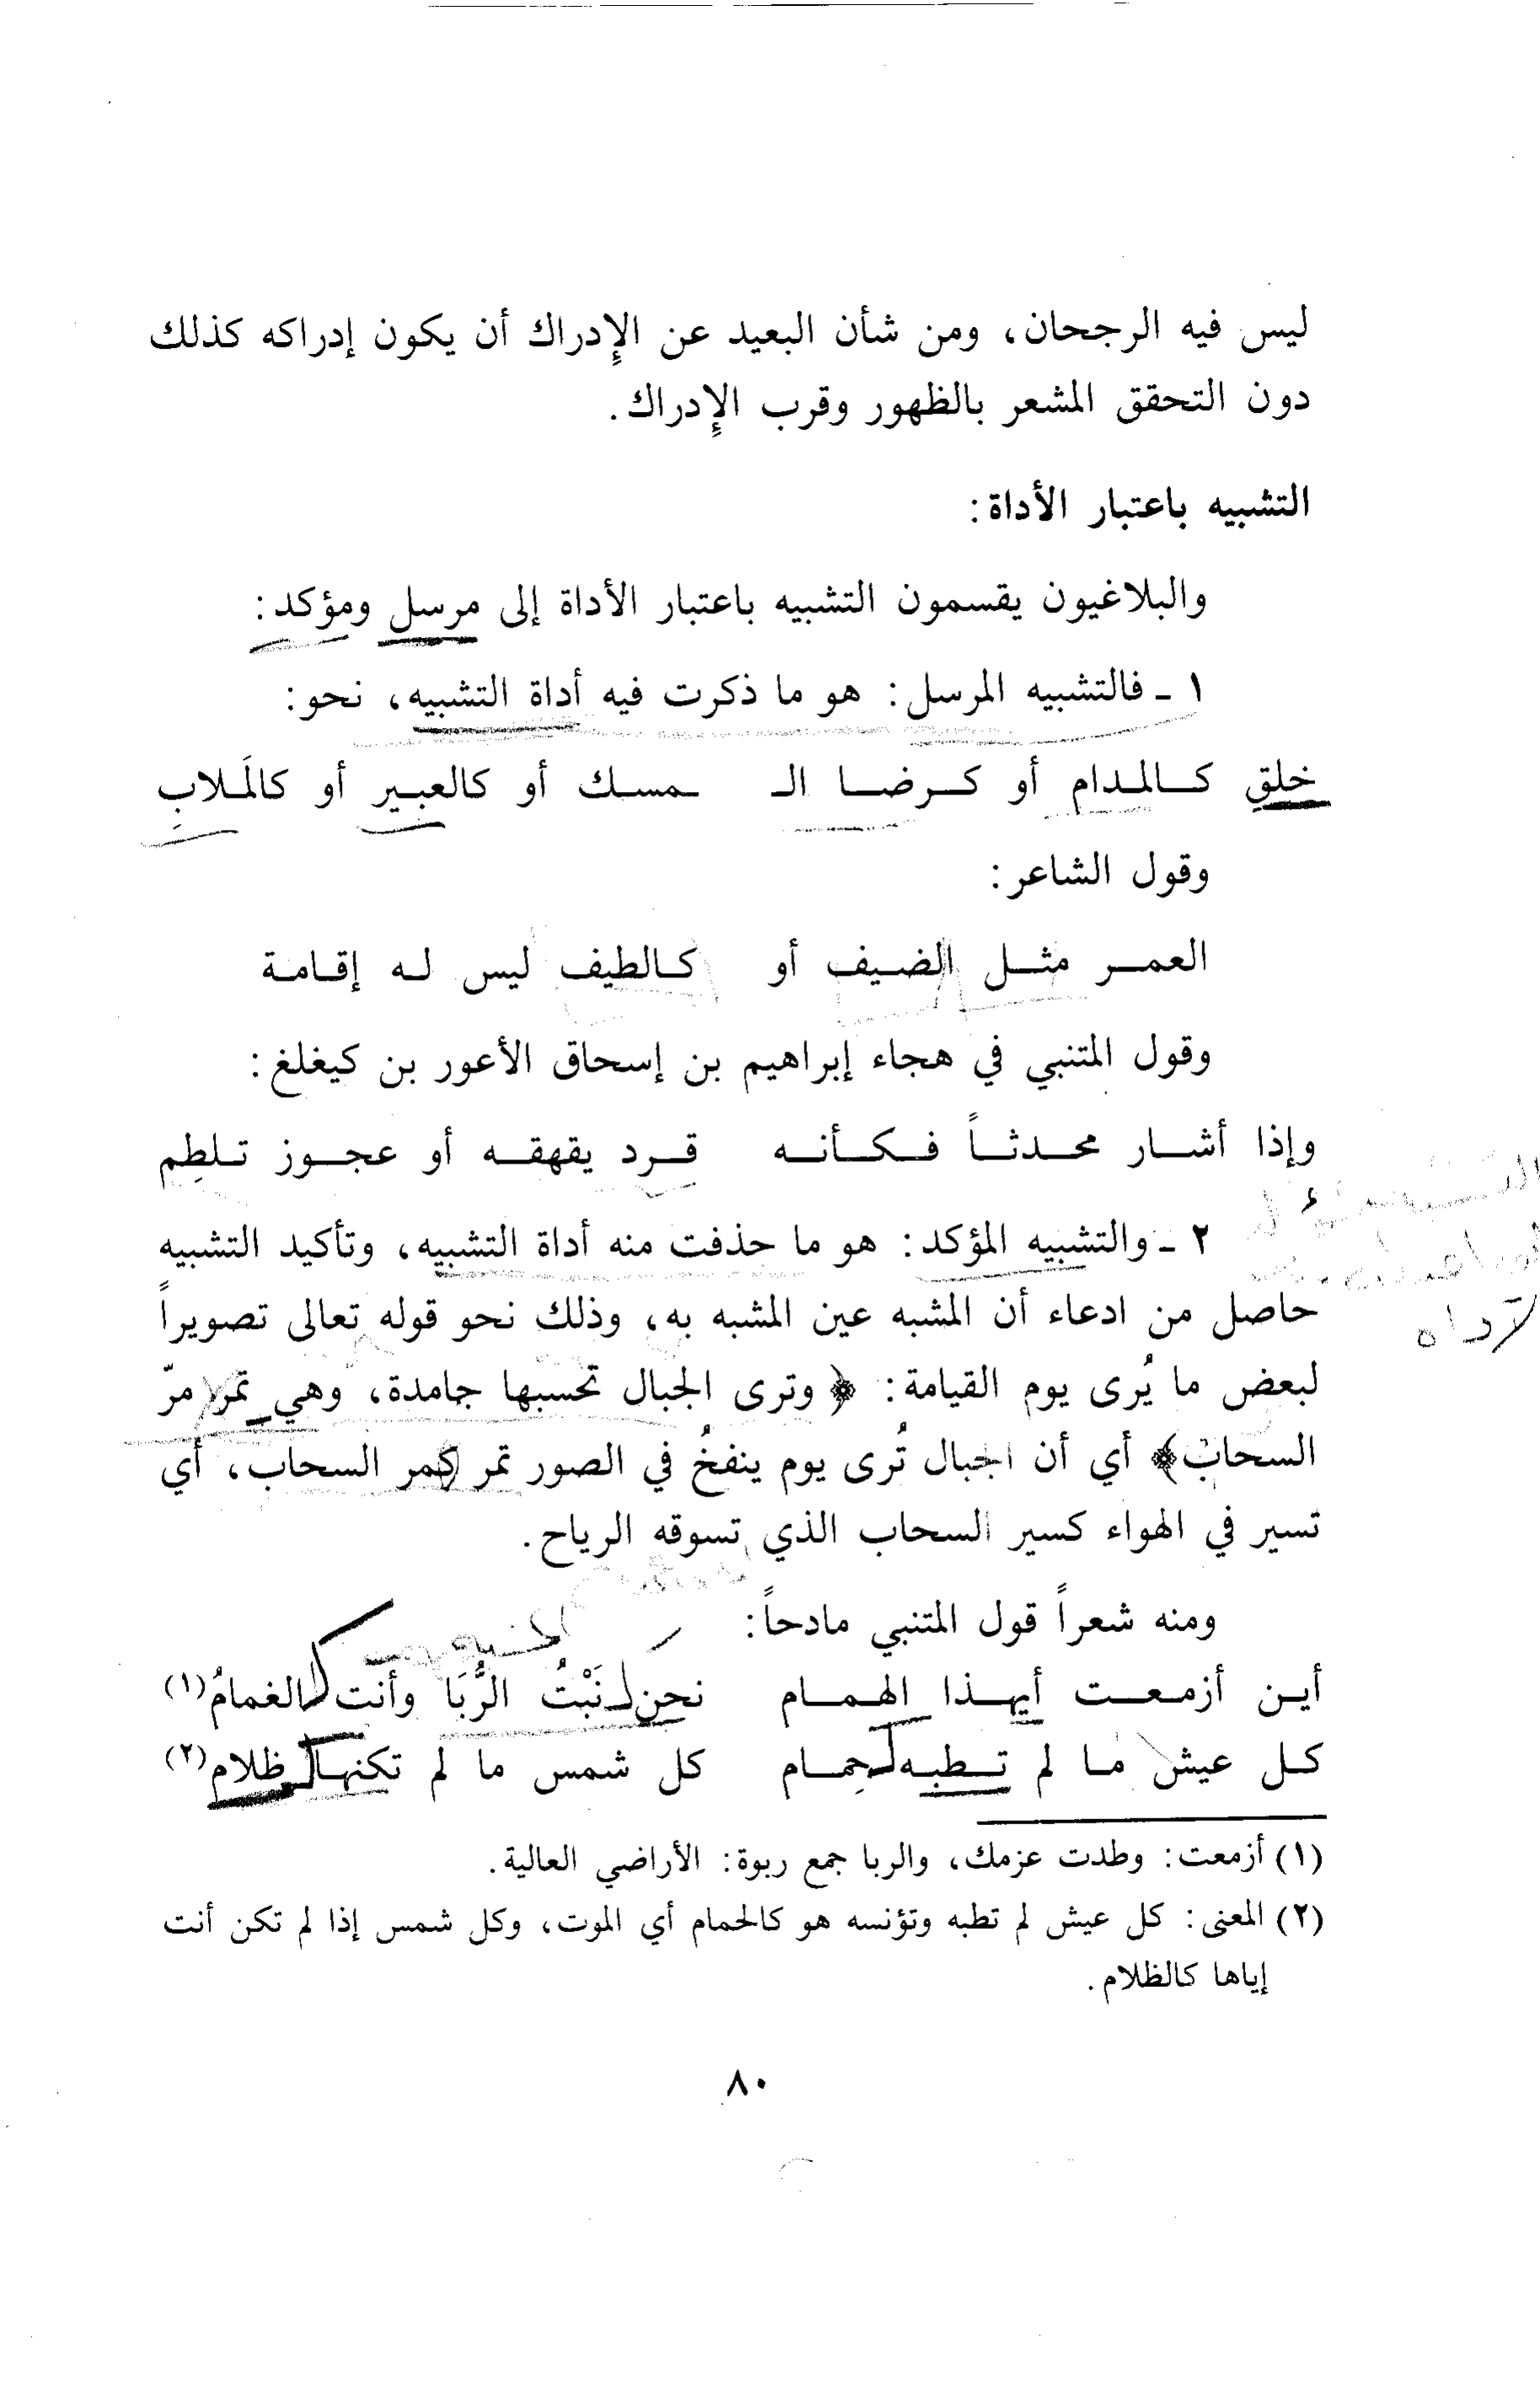 ليس فيه الرجحان، ومن شأن البعيد عن الإدراك أن يكون إدراكه كذلك
دون التحقق المشعر بالظهور وقرب الإدراك.
التشبيه باعتبار الأداة:
والبلاغيون يقسمون التشبيه باعتبار الأداة إلى مرسل ومؤكد:
١ - فالتشبيه المرسل: هو ما ذكرت فيه أداة التشبيه، نحو:
خلقٍ كـالمـدام أو كـرضـا الـ ـمسـك أو كالعبـير أو كالمَـلابِ
وقول الشاعر:
العمـر مثـل الضـيف أو كـالطيف ليس لـه إقـامـة
وقول المتنبي في هجاء إبراهيم بن إسحاق الأعور بن كيغلغ:
وإذا أشـار محـدثـاً فـكـأنـه قـرد يقهقـه أو عجـوز تـلطِم
٢ - والتشبيه المؤكد: هو ما حذفت منه أداة التشبيه، وتأكيد التشبيه
حاصل من ادعاء أن المشبه عين المشبه به، وذلك نحو قوله تعالى تصويراً
لبعض ما يُرى يوم القيامة: ﴿وترى الجبال تحسبها جامدة، وهي تمر مرّ
السحاب﴾ أي أن الجبال تُرى يوم ينفخُ في الصور تمر كمر السحاب، أي
تسير في الهواء كسير السحاب الذي تسوقه الرياح.
ومنه شعراً قول المتنبي مادحاً:
أيـن أزمـعـت أيهـذا الهـمـام نحن نَبْتُ الرُّبَا وأنت الغمامُ(١)
كـل عيش مـا لم تـطبـه حِمـام كل شمس ما لم تكنهـا ظلام(٢)
(١) أزمعت: وطدت عزمك، والربا جمع ربوة: الأراضي العالية.
(٢) المعنى: كل عيش لم تطبه وتؤنسه هو كالحمام أي الموت، وكل شمس إذا لم تكن أنت
إياها كالظلام.
٨٠